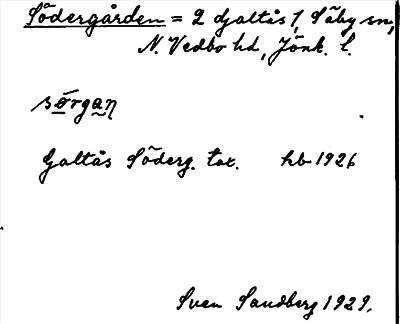 Södergården = 2 Galtås 1, Säby sn,
N. Vedbo hd, Jönk. l.
sörgaɳ
Galtås Söderg. tax. hb 1926
Sven Sandberg 1929.